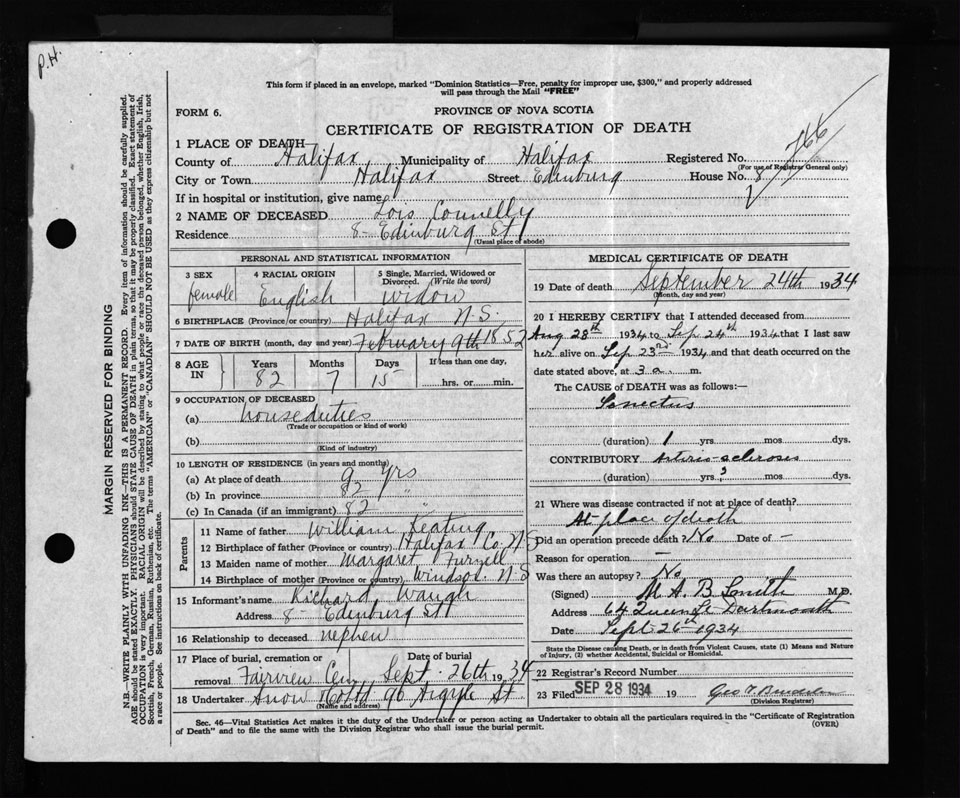 P.H.
This form if placed in an envelope, marked "Dominion Statistics—Free, penalty for improper use, $300," and properly addressed
will pass through the Mail "FREE"
FORM 6.
PROVINCE OF NOVA SCOTIA
CERTIFICATE OF REGISTRATION OF DEATH
1 PLACE OF DEATH
County of Halifax, Municipality of Halifax Registered No. 766
(For use of Registrar General only)
City or Town Halifax Street Edinburg House No. 8
If in hospital or institution, give name
2 NAME OF DECEASED Lois Connelly
Residence 8 - Edinburg St
(Usual place of abode)
PERSONAL AND STATISTICAL INFORMATION
3 SEX 4 RACIAL ORIGIN 5 Single, Married, Widowed or
Divorced. (Write the word)
female English Widow
6 BIRTHPLACE (Province or country) Halifax N.S.
7 DATE OF BIRTH (month, day and year) February 9th 1852
8 AGE IN Years Months Days If less than one day,
82 7 15 hrs. or min.
9 OCCUPATION OF DECEASED
(a) house duties
(Trade or occupation or kind of work)
(b)
(Kind of industry)
10 LENGTH OF RESIDENCE (in years and months)
(a) At place of death 9 yrs
(b) In province 82
(c) In Canada (if an immigrant) 82 "
Parents
11 Name of father William Keating
12 Birthplace of father (Province or country) Halifax Co. N.S
13 Maiden name of mother Margaret
14 Birthplace of mother (Province or country) Windsor. N.S
15 Informant's name Richard Waugh
Address 8 - Edinburg St
16 Relationship to deceased nephew
17 Place of burial, cremation or Date of burial
removal Fairview Cem, Sept. 26th, 1934
18 Undertaker Snow & Co Ltd 90 Argyle St
(Name and address)
MEDICAL CERTIFICATE OF DEATH
19 Date of death September 24th 1934
(Month, day and year)
20 I HEREBY CERTIFY that I attended deceased from
Aug 28th 1934 to Sep 24th 1934 that I last saw
her alive on Sep 23rd 1934 and that death occurred on the
date stated above, at 3 a. m.
The CAUSE OF DEATH was as follows:—
Senectus
(duration) 1 yrs. mos. dys.
CONTRIBUTORY Arterio-scleroses
(duration) yrs. ? mos. dys.
21 Where was disease contracted if not at place of death?
At place of death
Did an operation precede death? No Date of —
Reason for operation —
Was there an autopsy? No
(Signed) M. A. B. Smith M.D.
Address 64 Queen St Dartmouth
Date Sept 26th 1934
State the Disease causing Death, or in death from Violent Causes, state (1) Means and Nature
of Injury, (2) whether Accidental, Suicidal or Homicidal.
22 Registrar's Record Number
23 Filed SEP 28 1934 19 Geo
(Division Registrar)
Sec. 46—Vital Statistics Act makes it the duty of the Undertaker or person acting as Undertaker to obtain all the particulars required in the "Certificate of Registration
of Death" and to file the same with the Division Registrar who shall issue the burial permit. (OVER)
MARGIN RESERVED FOR BINDING
N.B.—WRITE PLAINLY WITH UNFADING INK—THIS IS A PERMANENT RECORD. Every item of information should be carefully supplied.
AGE should be stated EXACTLY. PHYSICIANS should STATE CAUSE OF DEATH in plain terms, so that it may be properly classified. Exact statement of
OCCUPATION is very important. RACIAL ORIGIN will be described by stating to what people or race the deceased person belonged, whether English, Irish,
Scottish, French, German, Russian, Ruthenian, etc. The terms "AMERICAN" or "CANADIAN" SHOULD NOT BE USED as they express citizenship but not
a race or people. See instructions on back of certificate.